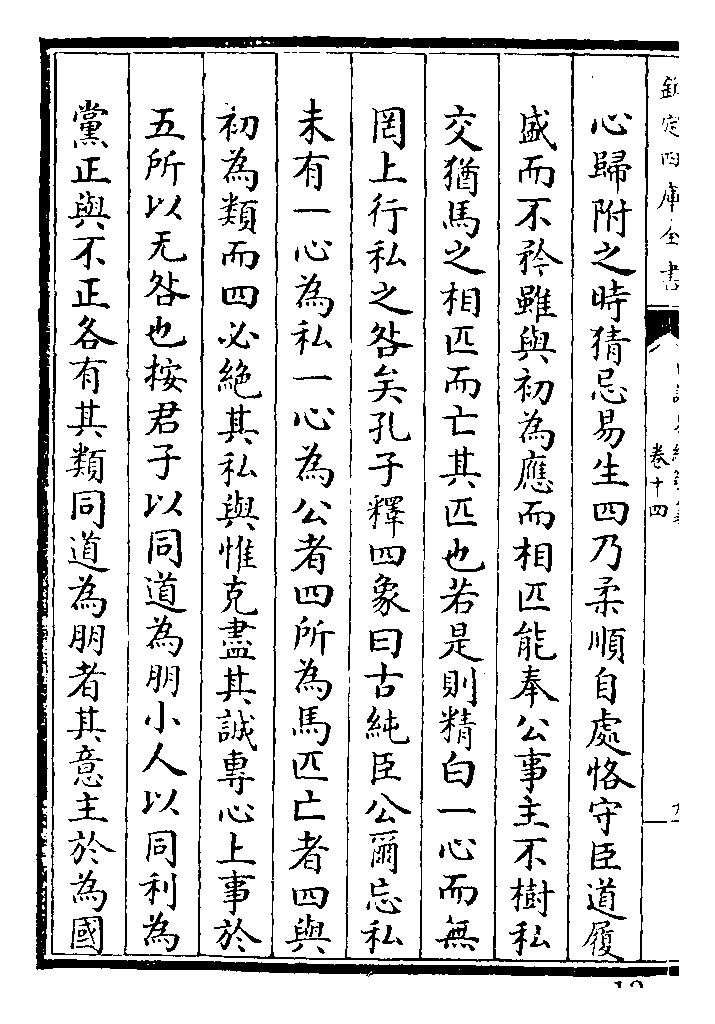 欽定四庫全書
卷十四
心歸附之時猜忌易生四乃柔順自處恪守臣道履
盛而不矜雖與初為應而相匹能奉公事主不樹私
交猶馬之相匹而亡其匹也若是則精白一心而無
罔上行私之咎矣孔子釋四象曰古純臣公爾忘私
未有一心為私一心為公者四所為馬匹亡者四與
初為類而四必絶其私與惟克盡其誠專心上事於
五所以无咎也按君子以同道為朋小人以同利為
黨正與不正各有其類同道為朋者其意主於為國